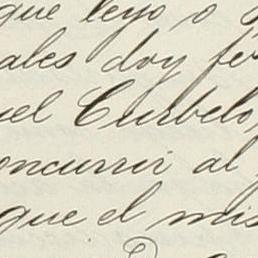 que leyo o
ales doy fe
uel Curbelo,
oncurrir al
que el mis